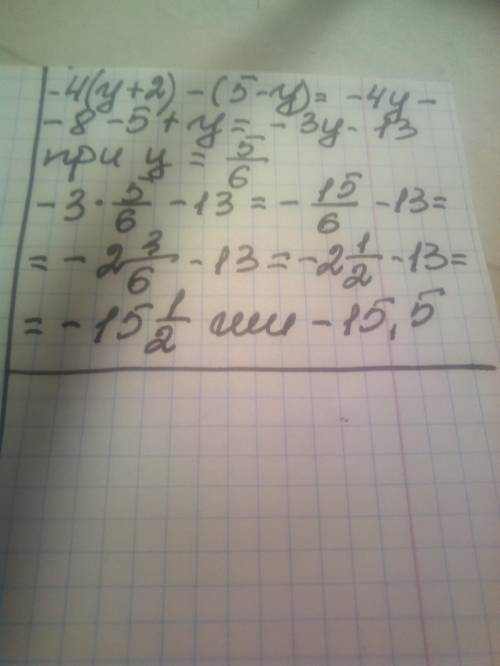 -4(y+2) - (5-y) = -4y -
-8 -5 + y = -3y - 13
при y = 5/6
-3 · 5/6 - 13 = - 15/6 - 13 =
= - 2 3/6 - 13 = -2 1/2 - 13 =
= - 15 1/2 или - 15,5